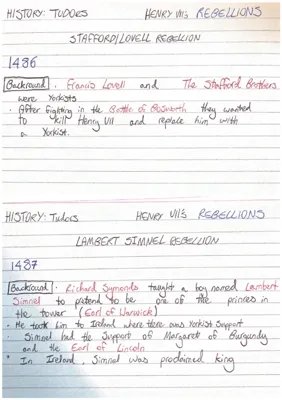 HISTORY: TUDORS HENRY VII's REBELLIONS
STAFFORD/LOVELL REBELLION
1486
Background · Francis Lovell and The Stafford Brothers
were Yorkists
· After fighting in the Battle of Bosworth they wanted
to kill Henry VII and replace him with
a Yorkist.
HISTORY: Tudors HENRY VII's REBELLIONS
LAMBERT SIMNEL REBELLION
1487
Background · Richard Symonds taught a boy named Lambert
Simnel to pretend to be one of the princes in
the tower (Earl of Warwick)
· He took him to Ireland where there was Yorkist Support
· Simnel had the Support of Margaret of Burgundy
and the Earl of Lincoln
· In Ireland, Simnel was proclaimed king